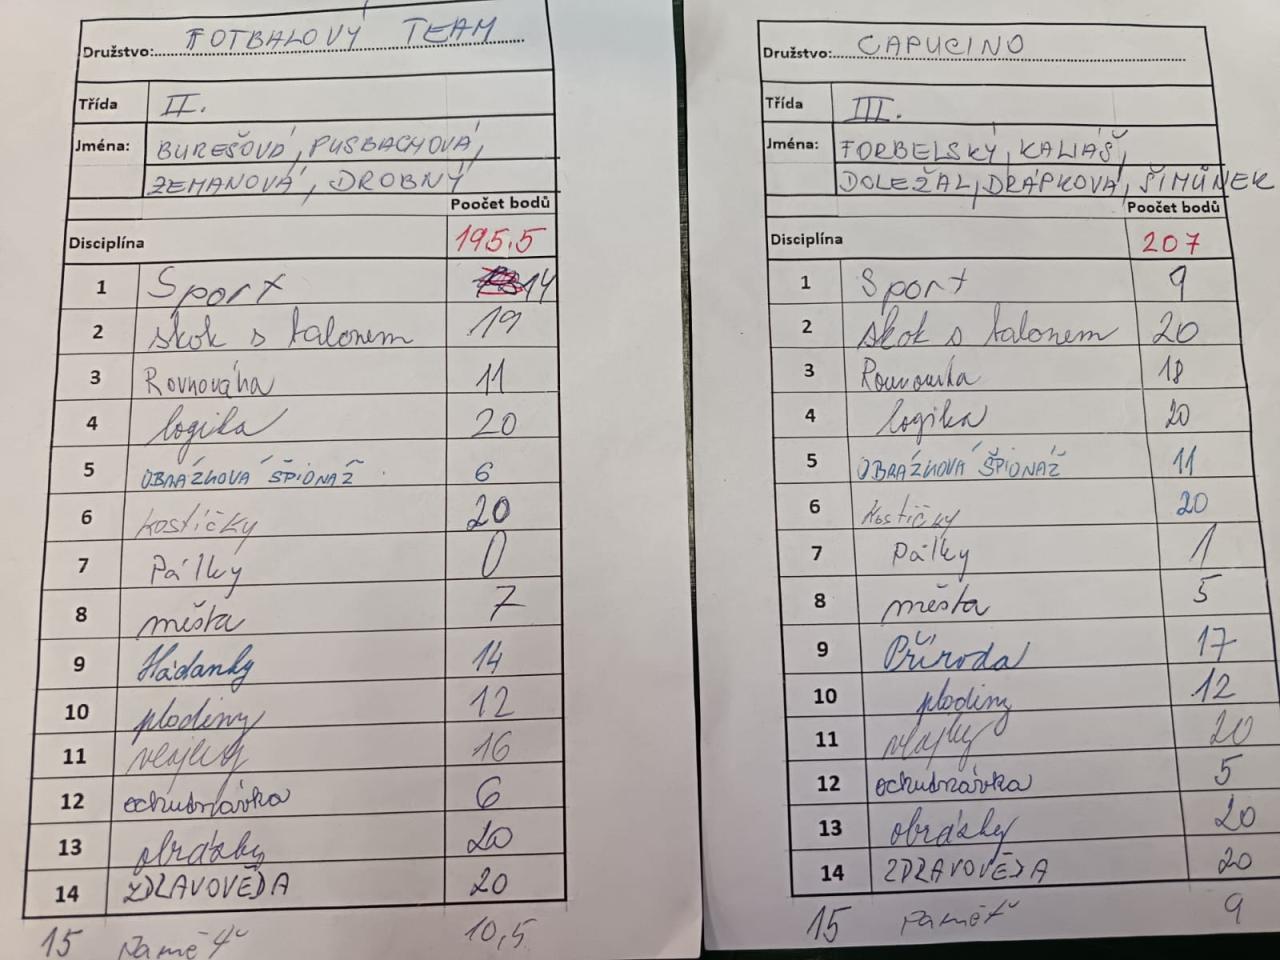 Družstvo: FOTBALOVÝ TEAM
Třída II.
Jména: BUREŠOVÁ, PUSBACHOVÁ,
ZEMANOVÁ, DROBNÝ
Poočet bodů
Disciplína 195,5
1 Sport 14
2 skok s balonem 19
3 Rovnováha 11
4 logika 20
5 OBRÁZKOVÁ ŠPIONÁŽ 6
6 kostičky 20
7 Pálky 0
8 města 7
9 Hádanky 14
10 plodiny 12
11 vlajky 16
12 ochutnávka 6
13 obrázky 20
14 ZDRAVOVĚDA 20
15 Paměť 10,5
Družstvo: CAPUCINO
Třída III.
Jména: FORBELSKÝ, KALIÁŠ,
DOLEŽAL, DRÁPKOVÁ, ŠIMŮNEK
Poočet bodů
Disciplína 207
1 Sport 9
2 skok s balonem 20
3 18
4 logika 20
5 OBRÁZKOVÁ ŠPIONÁŽ 11
6 kostičky 20
7 Pálky 1
8 města 5
9 Příroda 17
10 plodiny 12
11 vlajky 20
12 ochutnávka 5
13 obrázky 20
14 ZDRAVOVĚDA 20
15 Paměť 9